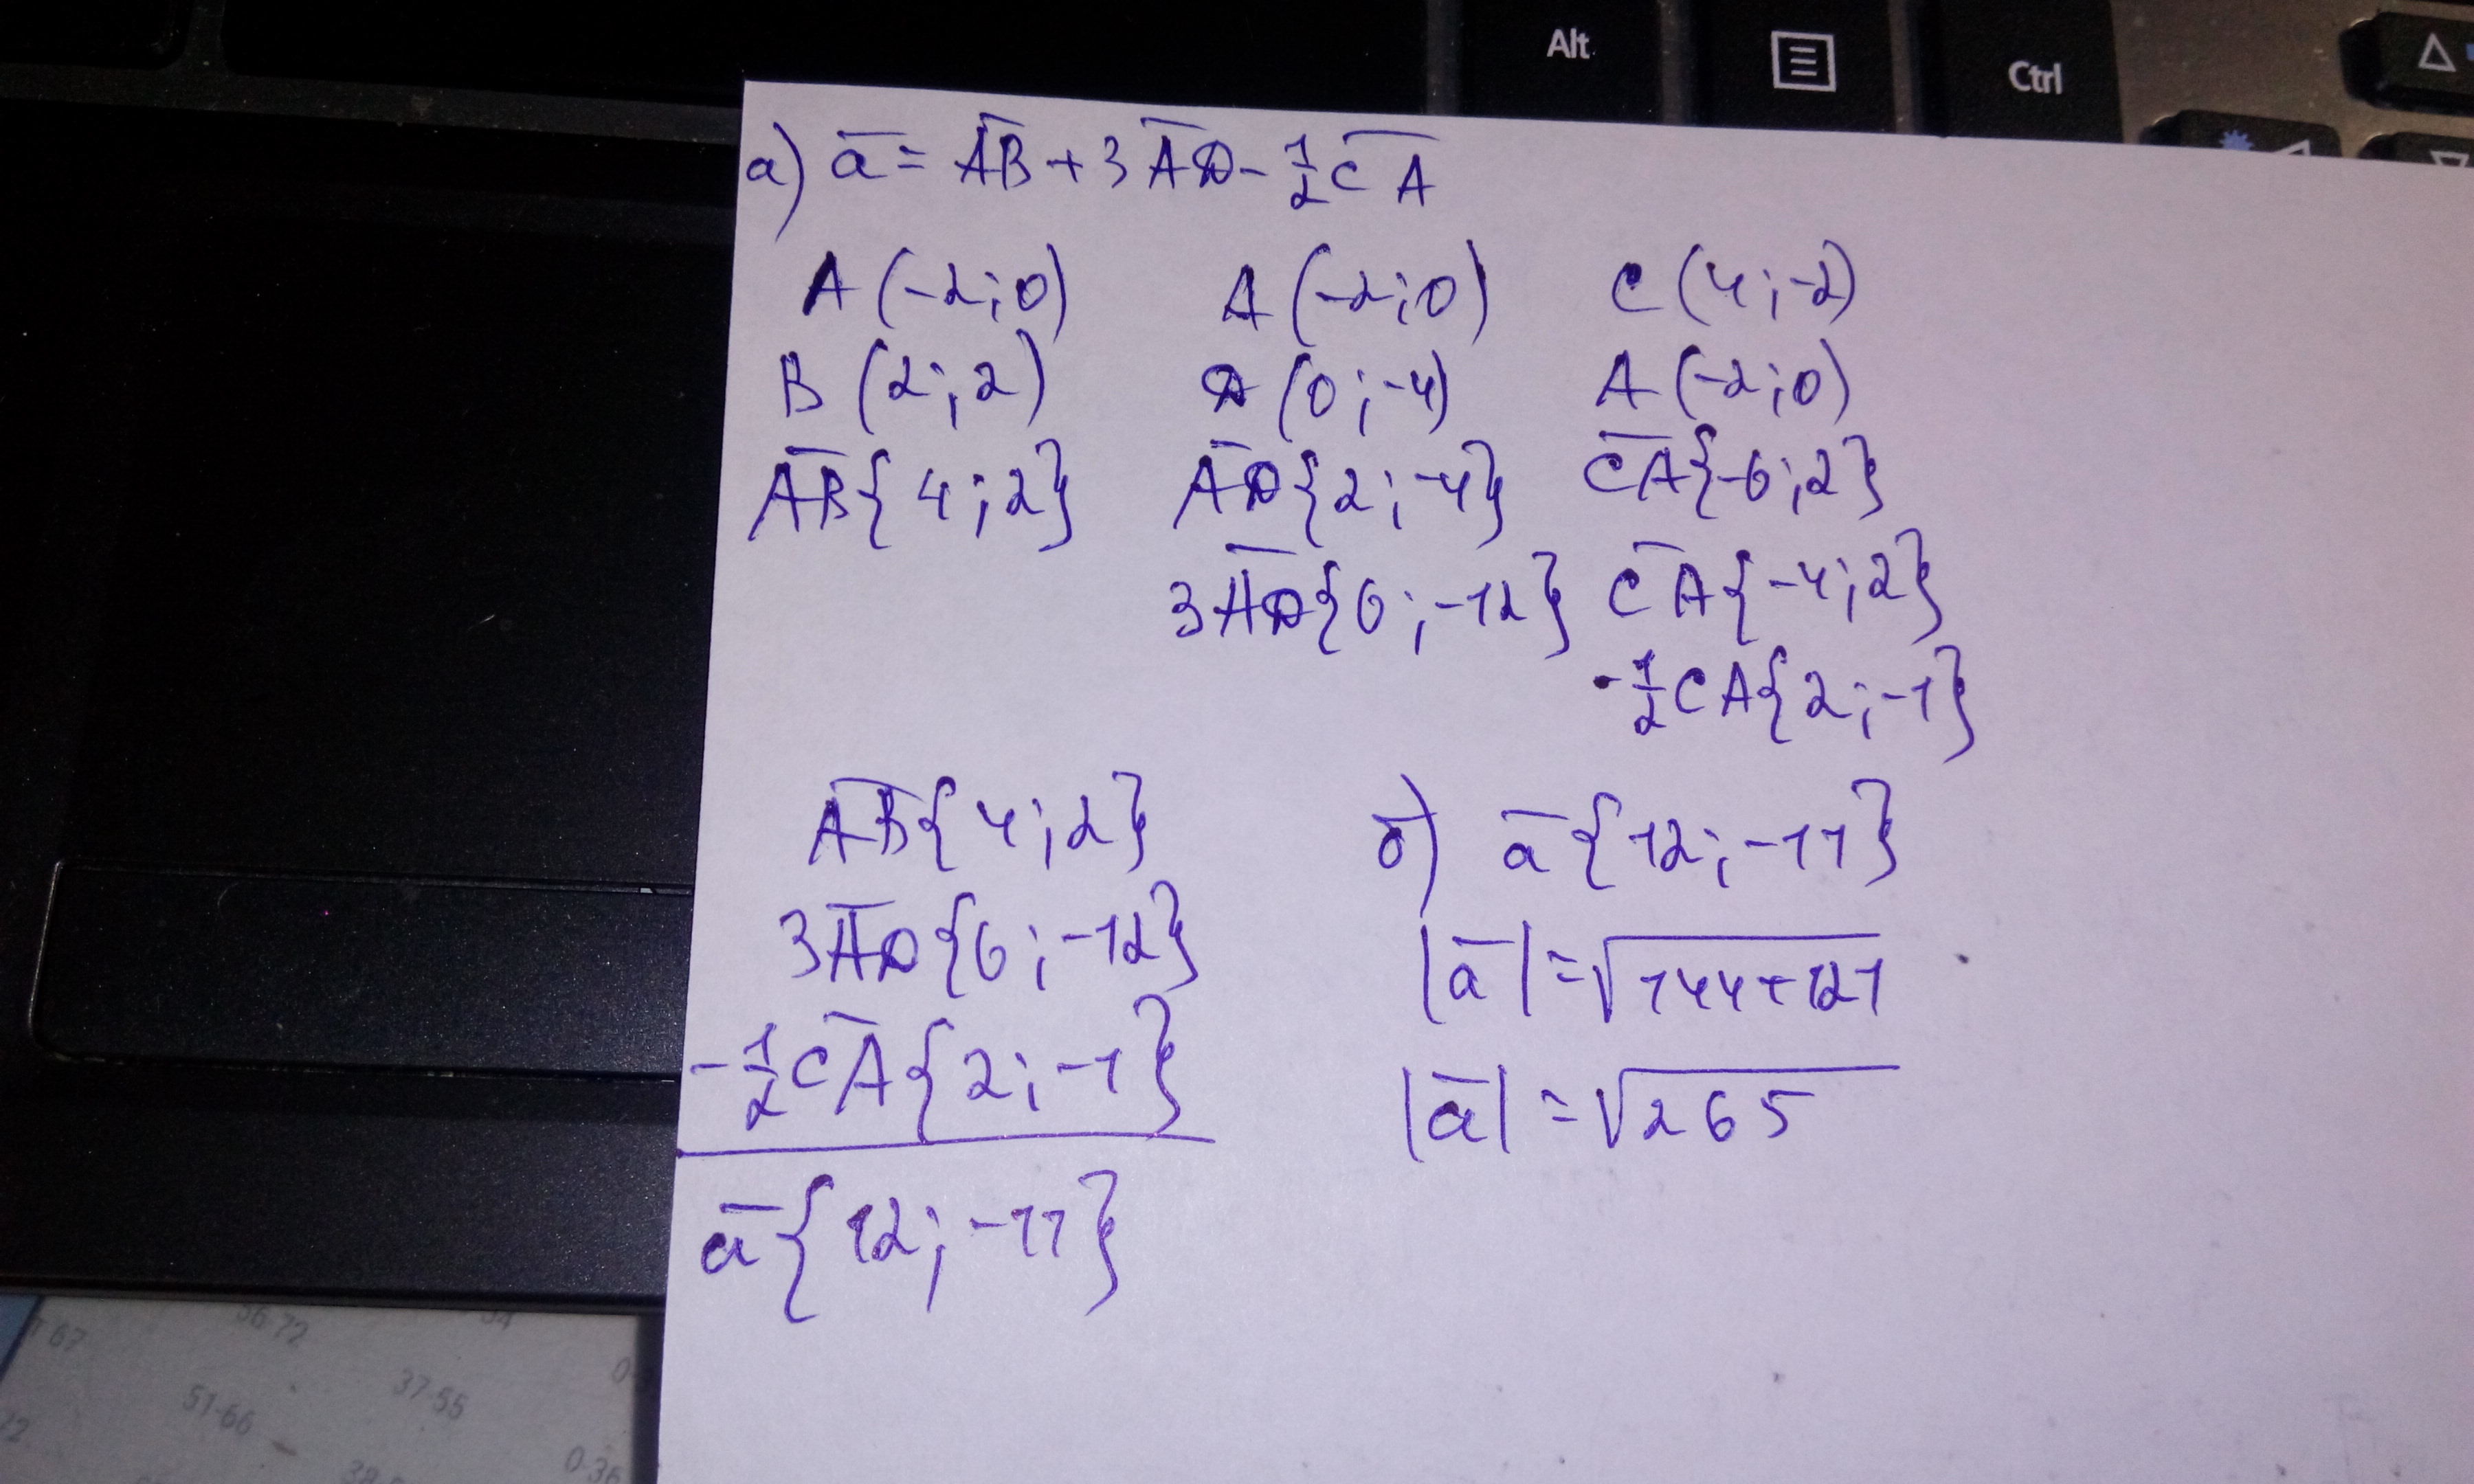 Alt
Ctrl
а) a̅ = A̅B̅ + 3A̅D̅ - 1/2 C̅A̅
A (-2; 0)
B (2; 2)
A̅B̅ {4; 2}
A (-2; 0)
D (0; -4)
A̅D̅ {2; -4}
3A̅D̅ {6; -12}
C (4; -2)
A (-2; 0)
C̅A̅ {-6; 2}
C̅A̅ {-4; 2}
-1/2 CA {2; -1}
A̅B̅ {4; 2}
3A̅D̅ {6; -12}
-1/2 C̅A̅ {2; -1}
a̅ {12; -11}
б) a̅ {12; -11}
|a̅| = √144+121
|a̅| = √265
56-72
37-55
51-66